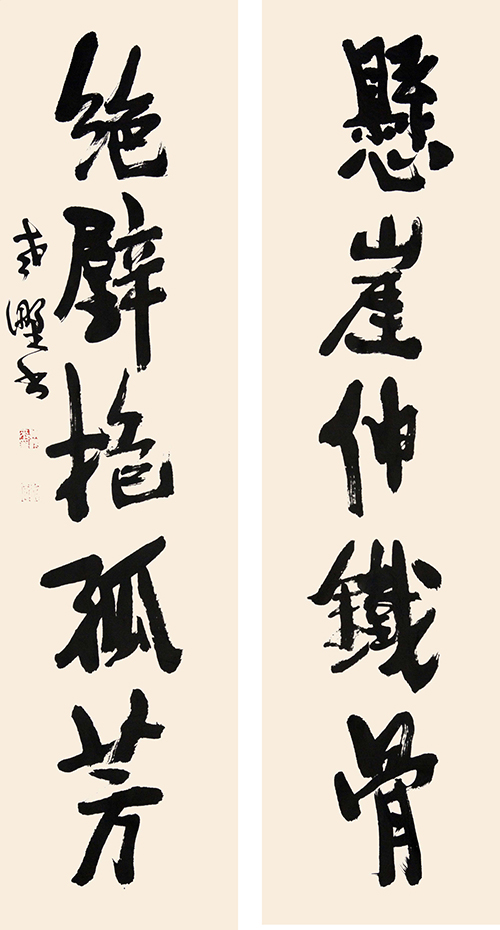 懸崖伸鐵骨
絶壁抱孤芳